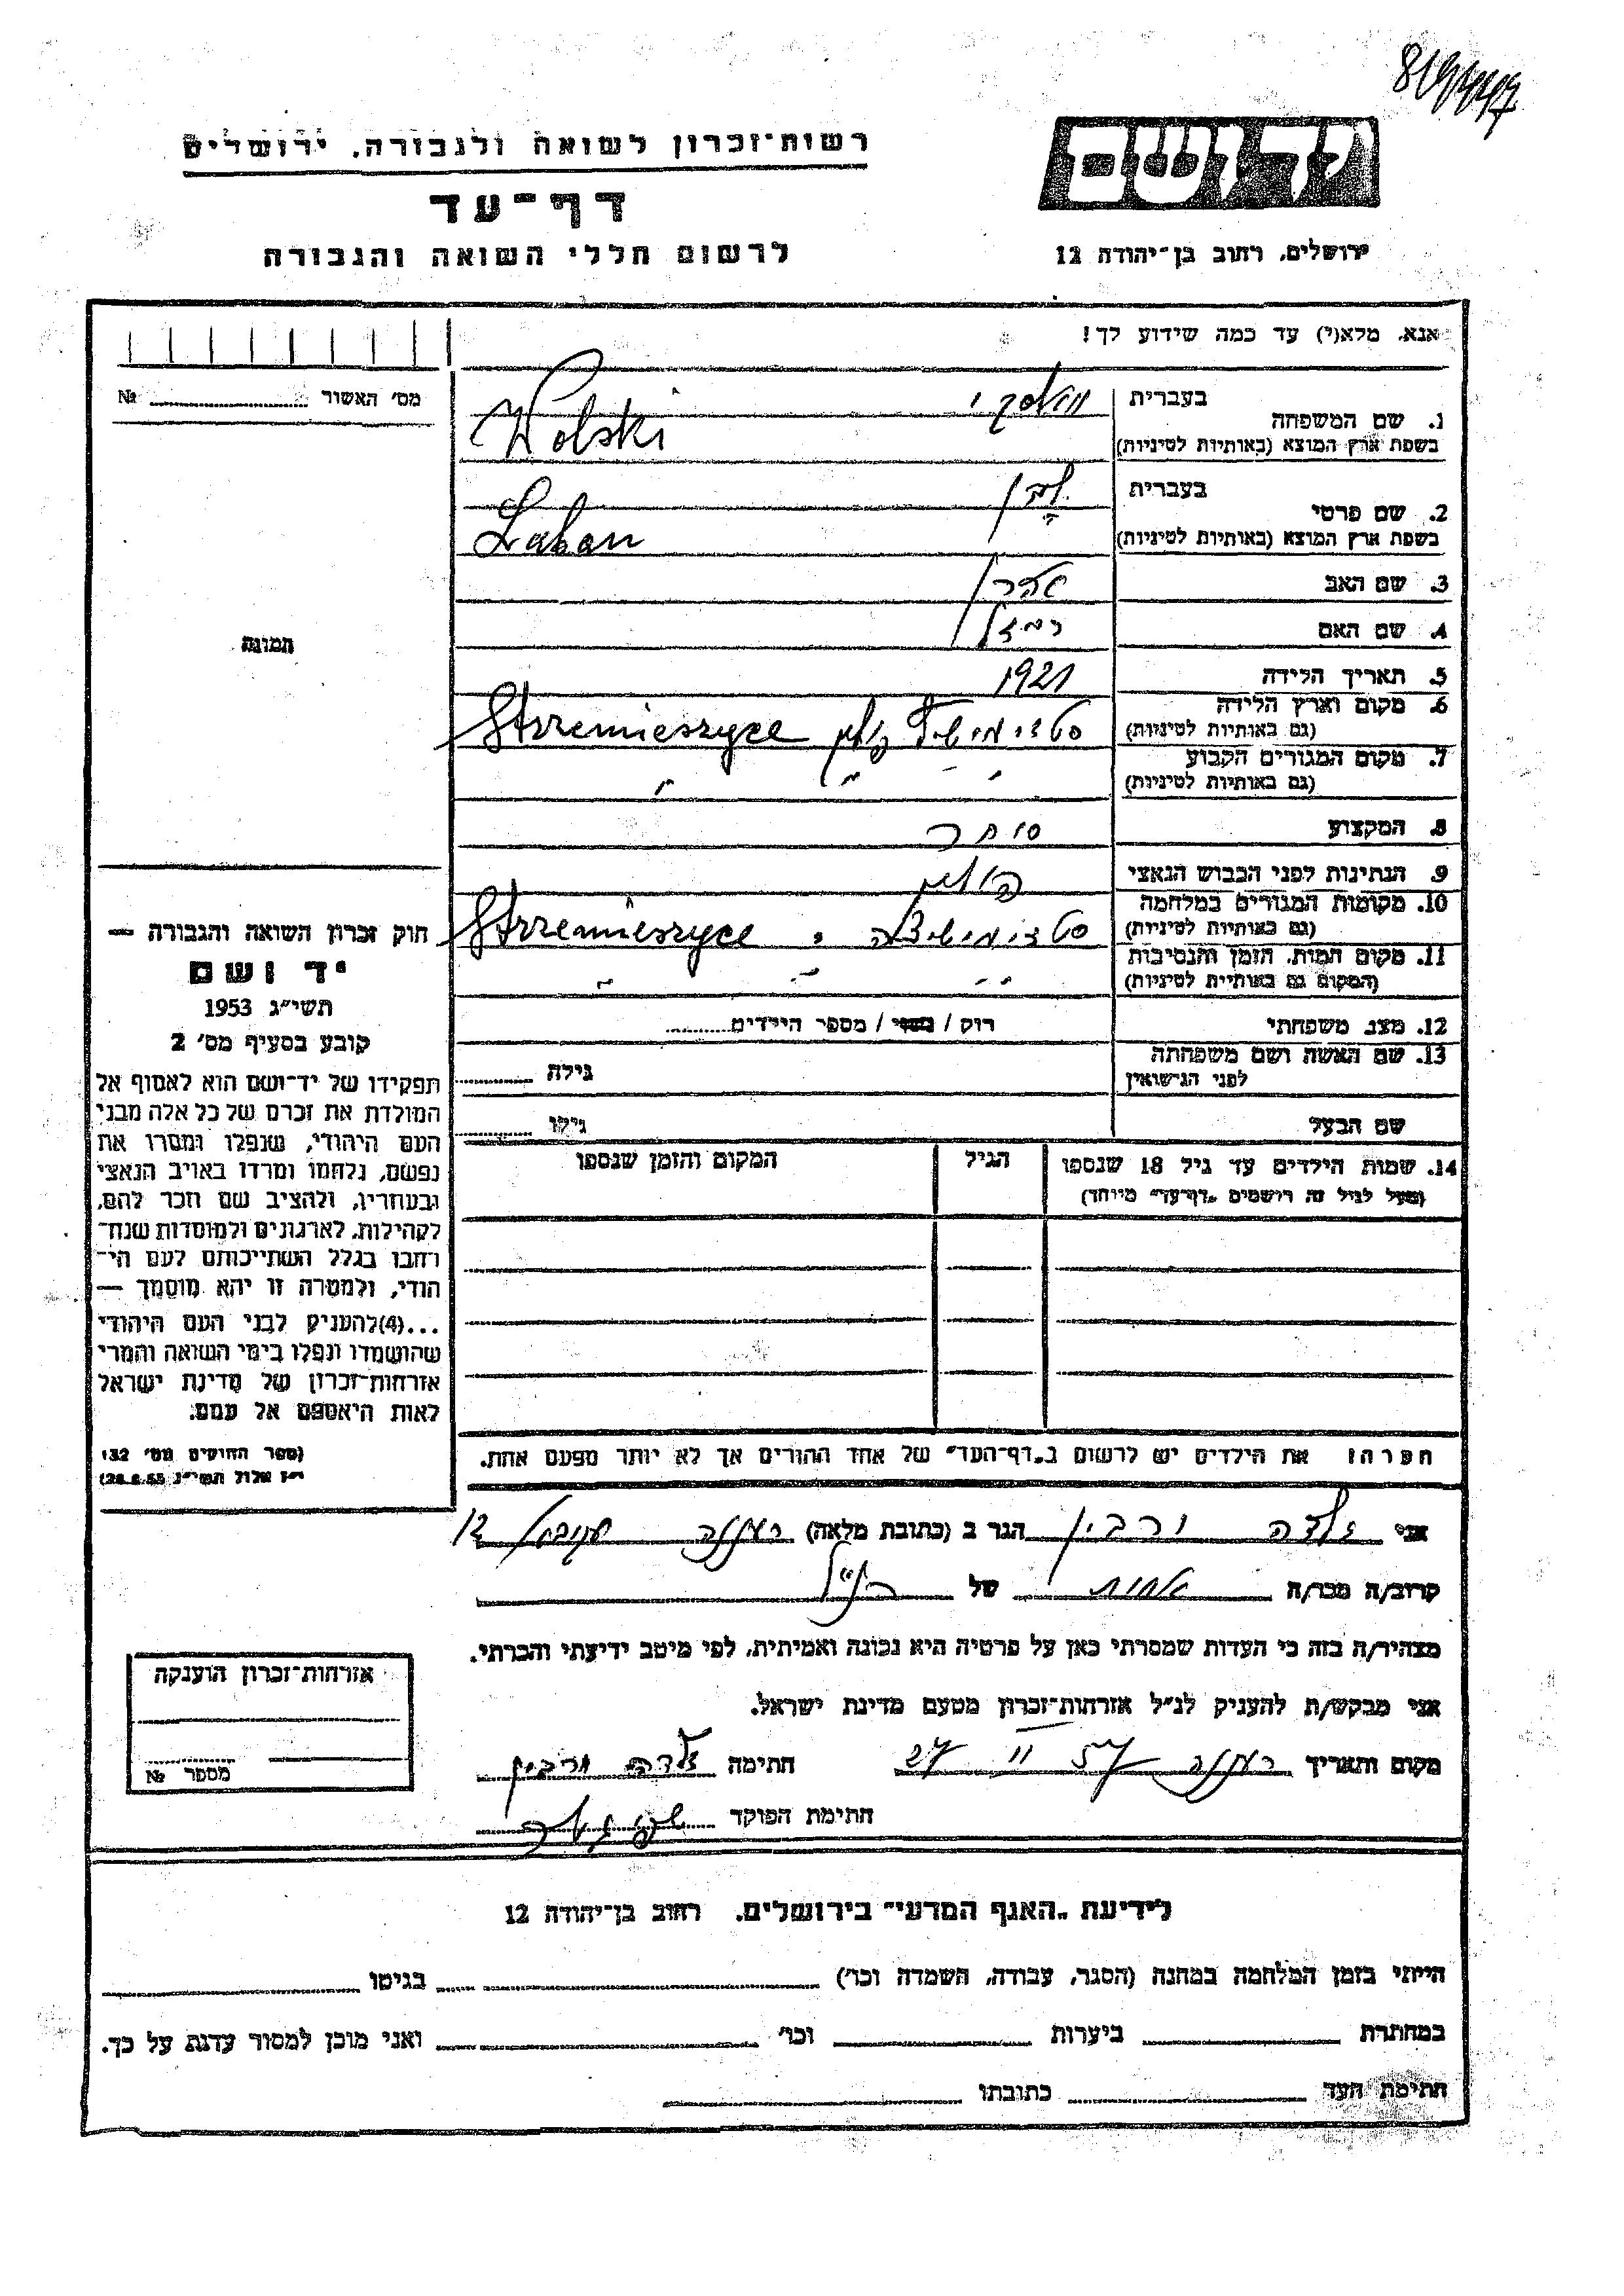 רשות־זכרון לשואה ולגבורה, ירושלים
דף־עד
לרשום חללי השואה והגבורה
יד ושם
ירושלים, רחוב בן־יהודה 12
אנא, מלא(י) עד כמה שידוע לך!
מס' האשור №
1. שם המשפחה
בעברית וולסקי
בשפת ארץ המוצא (באותיות לטיניות) Wolski
2. שם פרטי
בעברית לבן
בשפת ארץ המוצא (באותיות לטיניות) Laban
3. שם האב
4. שם האם
5. תאריך הלידה 1921
6. מקום וארץ הלידה
(גם באותיות לטיניות) פולין Strzemieszyce
7. מקום המגורים הקבוע
(גם באותיות לטיניות) " " "
8. המקצוע סוחר
9. הנתינות לפני הכבוש הנאצי פולין
10. מקומות המגורים במלחמה
(גם באותיות לטיניות) Strzemieszyce
11. מקום המות, הזמן והנסיבות
(המקום גם באותיית לטיניות) " " "
12. מצב משפחתי רוק / נשוי / מספר הילדים
13. שם האשה ושם משפחתה
לפני הנישואין גילה
שם הבעל גילו
14. שמות הילדים עד גיל 18 שנספו הגיל המקום והזמן שנספו
(מעל לגיל זה רושמים "דף־עד" מיוחד)
תמונה
חוק זכרון השואה והגבורה —
יד ושם
תשי"ג 1953
קובע בסעיף מס' 2
תפקידו של יד־ושם הוא לאסוף אל
המולדת את זכרם של כל אלה מבני
העם היהודי, שנפלו ומסרו את
נפשם, נלחמו ומרדו באויב הנאצי
ובעוזריו, ולהציב שם וזכר להם,
לקהילות, לארגונים ולמוסדות שנח־
רחבו בגלל השתייכותם לעם הי־
הודי, ולמטרה זו יהא מוסמך —
...(4) להעניק לבני העם היהודי
שהושמדו ונפלו בימי השואה והמרי
אזרחות־זכרון של מדינת ישראל
לאות היאספם אל עמם.
(ספר החוקים מס' 132
י"ז אלול תשי"ג 28.8.53)
הערה: את הילדים יש לרשום ב"דף־העד" של אחד ההורים אך לא יותר מפעם אחת.
אני זלדה ורבין הגר ב (כתובת מלאה) רעננה 12
קרוב/ה מכר/ה אחות של הנ"ל
מצהיר/ה בזה כי העדות שמסרתי כאן על פרטיה היא נכונה ואמיתית, לפי מיטב ידיעתי והכרתי.
אני מבקש/ת להעניק לנ"ל אזרחות־זכרון מטעם מדינת ישראל.
מקום ותאריך רעננה חתימה זלדה ורבין
חתימת הפוקד
אזרחות־זכרון הוענקה
מספר №
לידיעת "האגף המדעי" בירושלים, רחוב בן־יהודה 12
הייתי בזמן המלחמה במחנה (הסגר, עבודה, השמדה וכו') בגיטו
במחתרת ביערות וכו' ואני מוכן למסור עדות על כך.
חתימת העד כתובתו